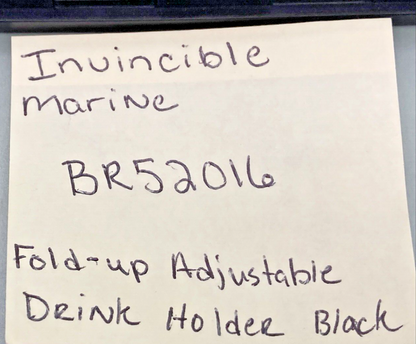 Invincible
marine
BR52016
Fold-up Adjustable
Drink Holder Black